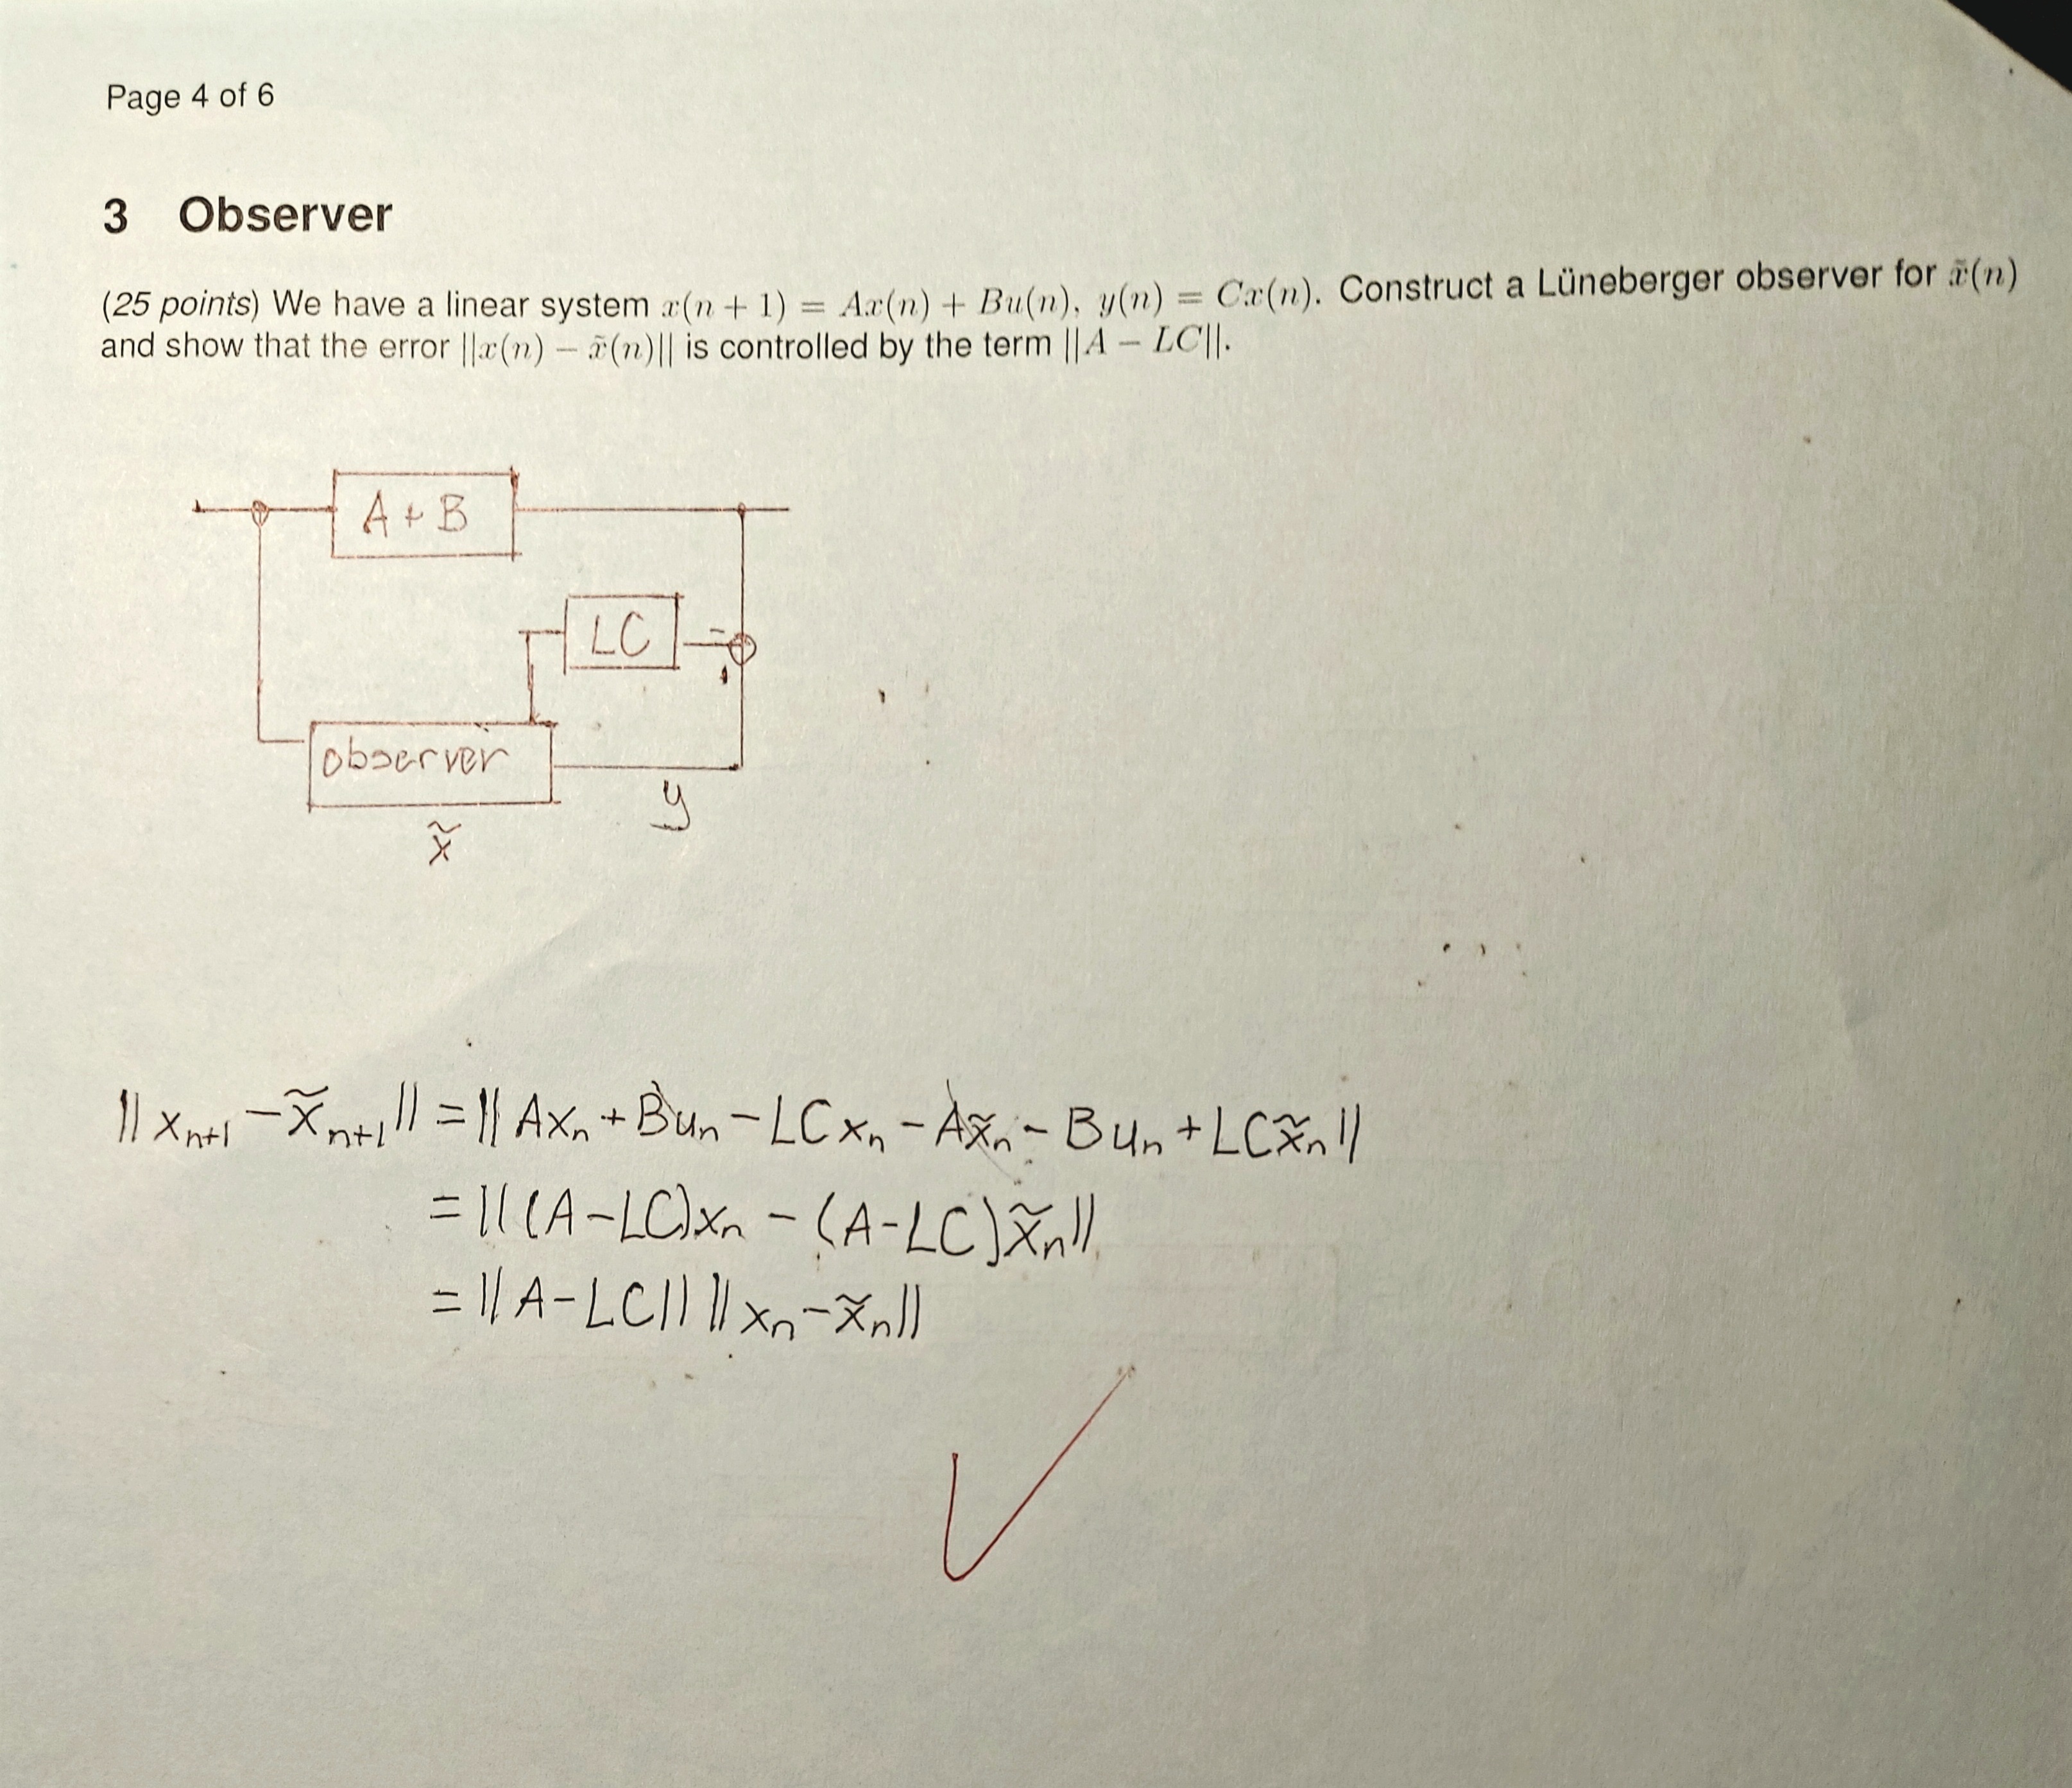 Page 4 of 6
3 Observer
(25 points) We have a linear system x(n + 1) = Ax(n) + Bu(n), y(n) = Cx(n). Construct a Lüneberger observer for x̃(n)
and show that the error ||x(n) − x̃(n)|| is controlled by the term ||A − LC||.
A + B
LC
-
observer
y
x̃
|| xₙ₊₁ − x̃ₙ₊₁ || = || Axₙ + Buₙ − LCxₙ − Ax̃ₙ − Buₙ + LCx̃ₙ ||
= || (A−LC)xₙ − (A−LC)x̃ₙ ||
= || A−LC || || xₙ − x̃ₙ ||